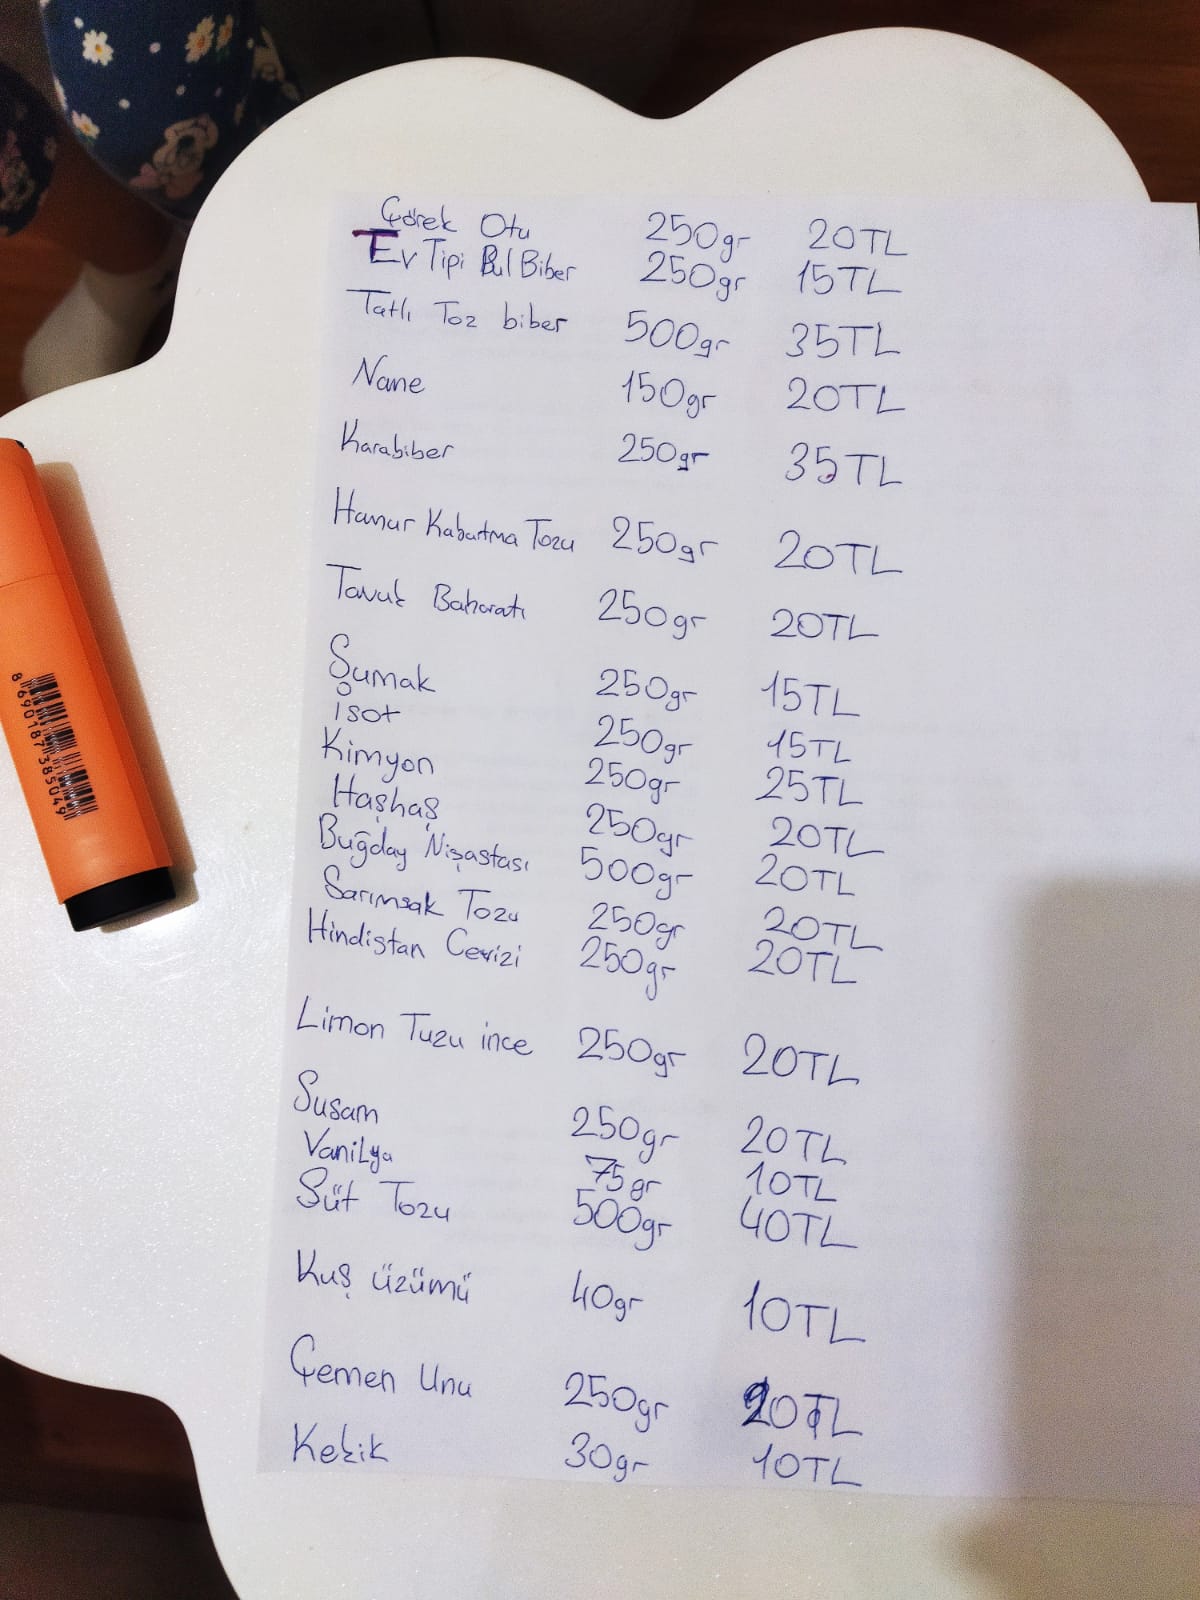 Çörek Otu 250gr 20TL
Ev Tipi Pul Biber 250gr 15TL
Tatlı Toz biber 500gr 35TL
Nane 150gr 20TL
Karabiber 250gr 35TL
Hamur Kabartma Tozu 250gr 20TL
Tavuk Baharatı 250gr 20TL
Sumak 250gr 15TL
isot 250gr 15TL
Kimyon 250gr 25TL
Haşhaş 250gr 20TL
Buğday Nişastası 500gr 20TL
Sarımsak Tozu 250gr 20TL
Hindistan Cevizi 250gr 20TL
Limon Tuzu ince 250gr 20TL
Susam 250gr 20TL
Vanilya 75gr 10TL
Süt Tozu 500gr 40TL
Kuş üzümü 40gr 10TL
Çemen Unu 250gr 20TL
Kekik 30gr 10TL
8 690187 385049